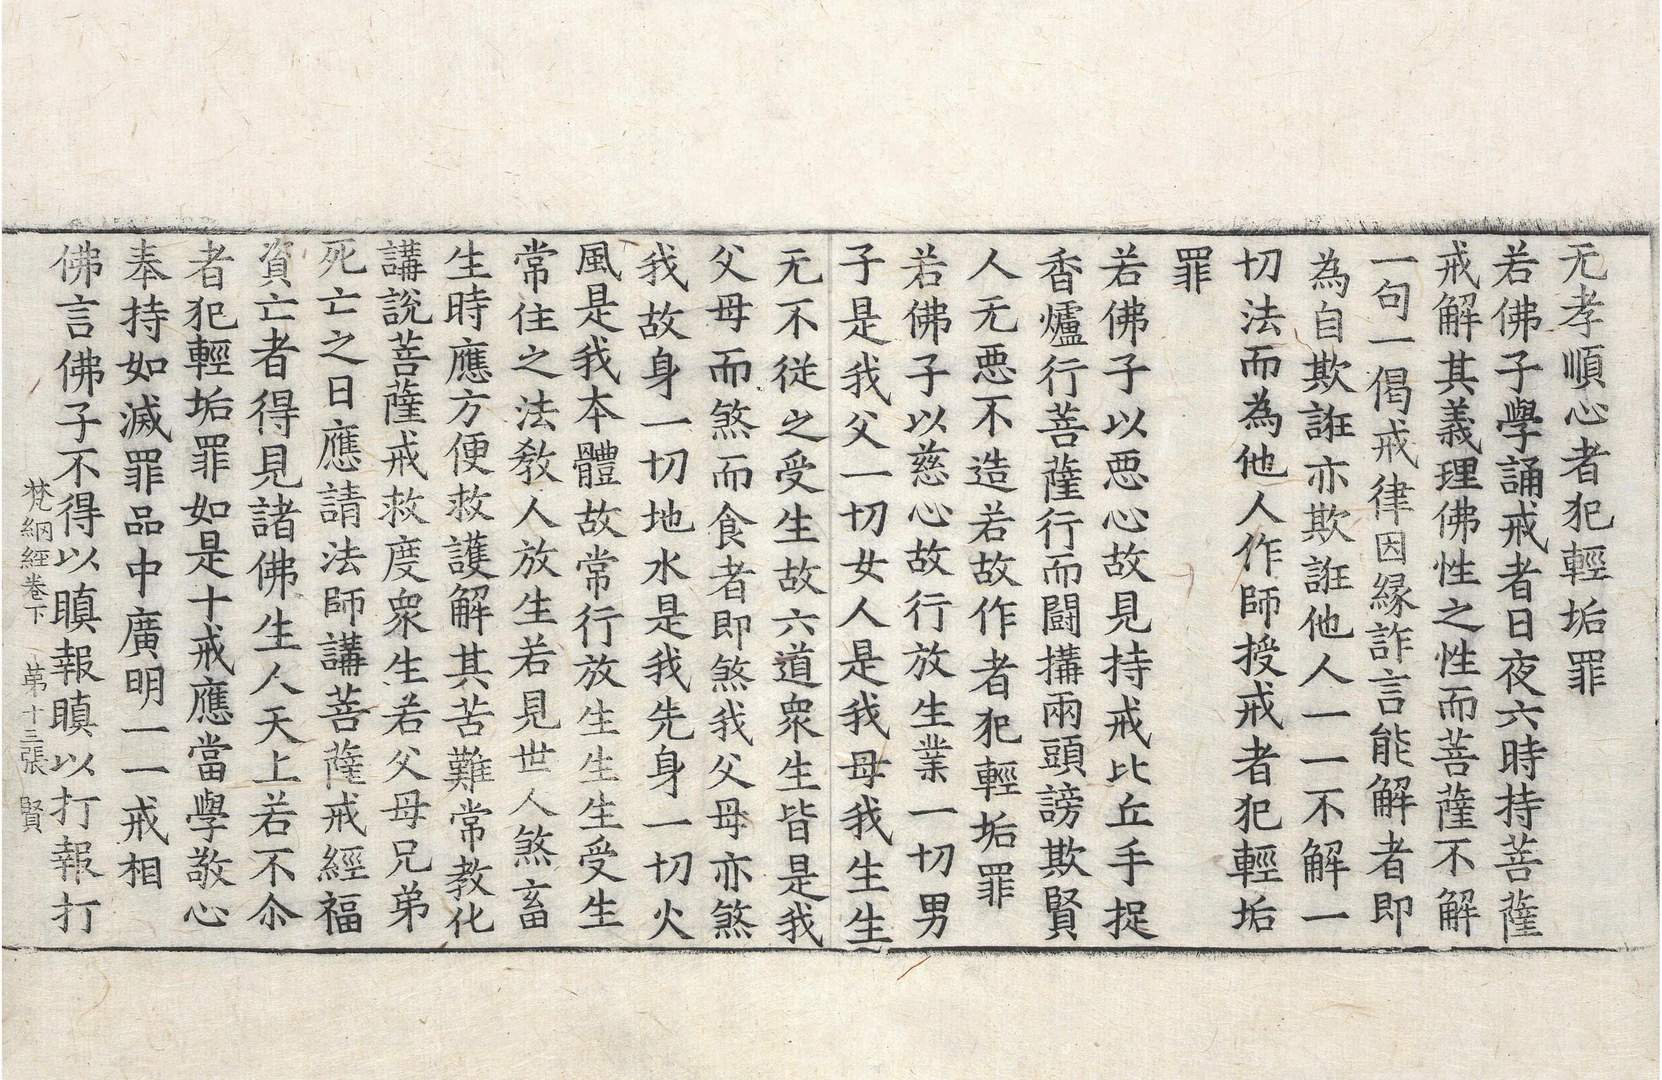 无孝順心者犯輕垢罪
若佛子學誦戒者日夜六時持菩薩
戒解其義理佛性之性而菩薩不解
一句一偈戒律因緣詐言能解者即
為自欺誑亦欺誑他人一一不解一
切法而為他人作師授戒者犯輕垢
罪
若佛子以惡心故見持戒比丘手捉
香爐行菩薩行而鬪搆兩頭謗欺賢
人无惡不造若故作者犯輕垢罪
若佛子以慈心故行放生業一切男
子是我父一切女人是我母我生生
无不從之受生故六道衆生皆是我
父母而煞而食者即煞我父母亦煞
我故身一切地水是我先身一切火
風是我本體故常行放生生生受生
常住之法教人放生若見世人煞畜
生時應方便救護解其苦難常教化
講說菩薩戒救度衆生若父母兄弟
死亡之日應請法師講菩薩戒經福
資亡者得見諸佛生人天上若不尒
者犯輕垢罪如是十戒應當學敬心
奉持如滅罪品中廣明一一戒相
佛言佛子不得以瞋報瞋以打報打
梵網經卷下 苐十三張 賢